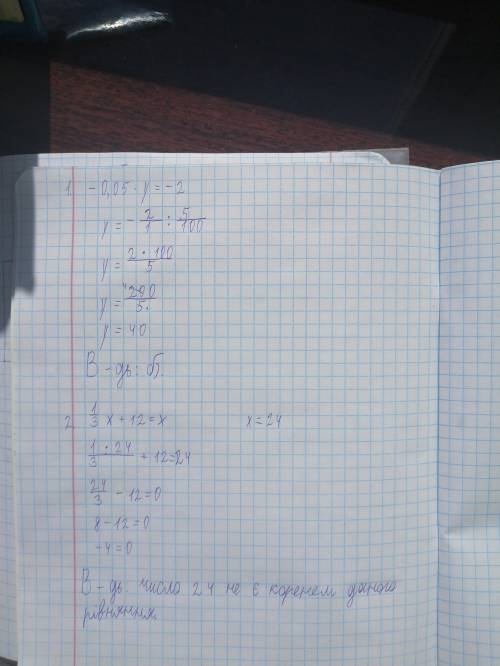 1. -0,05 · y = -2
y = - 2/1 : 5/100
y = 2 · 100/5
y = 200/5
y = 40
В-дь: б).
2. 1/3 x + 12 = x x = 24
1 · 24/3 + 12 = 24
24/3 - 12 = 0
8 - 12 = 0
-4 = 0
В-дь. число 24 не є коренем даного
рівняння.